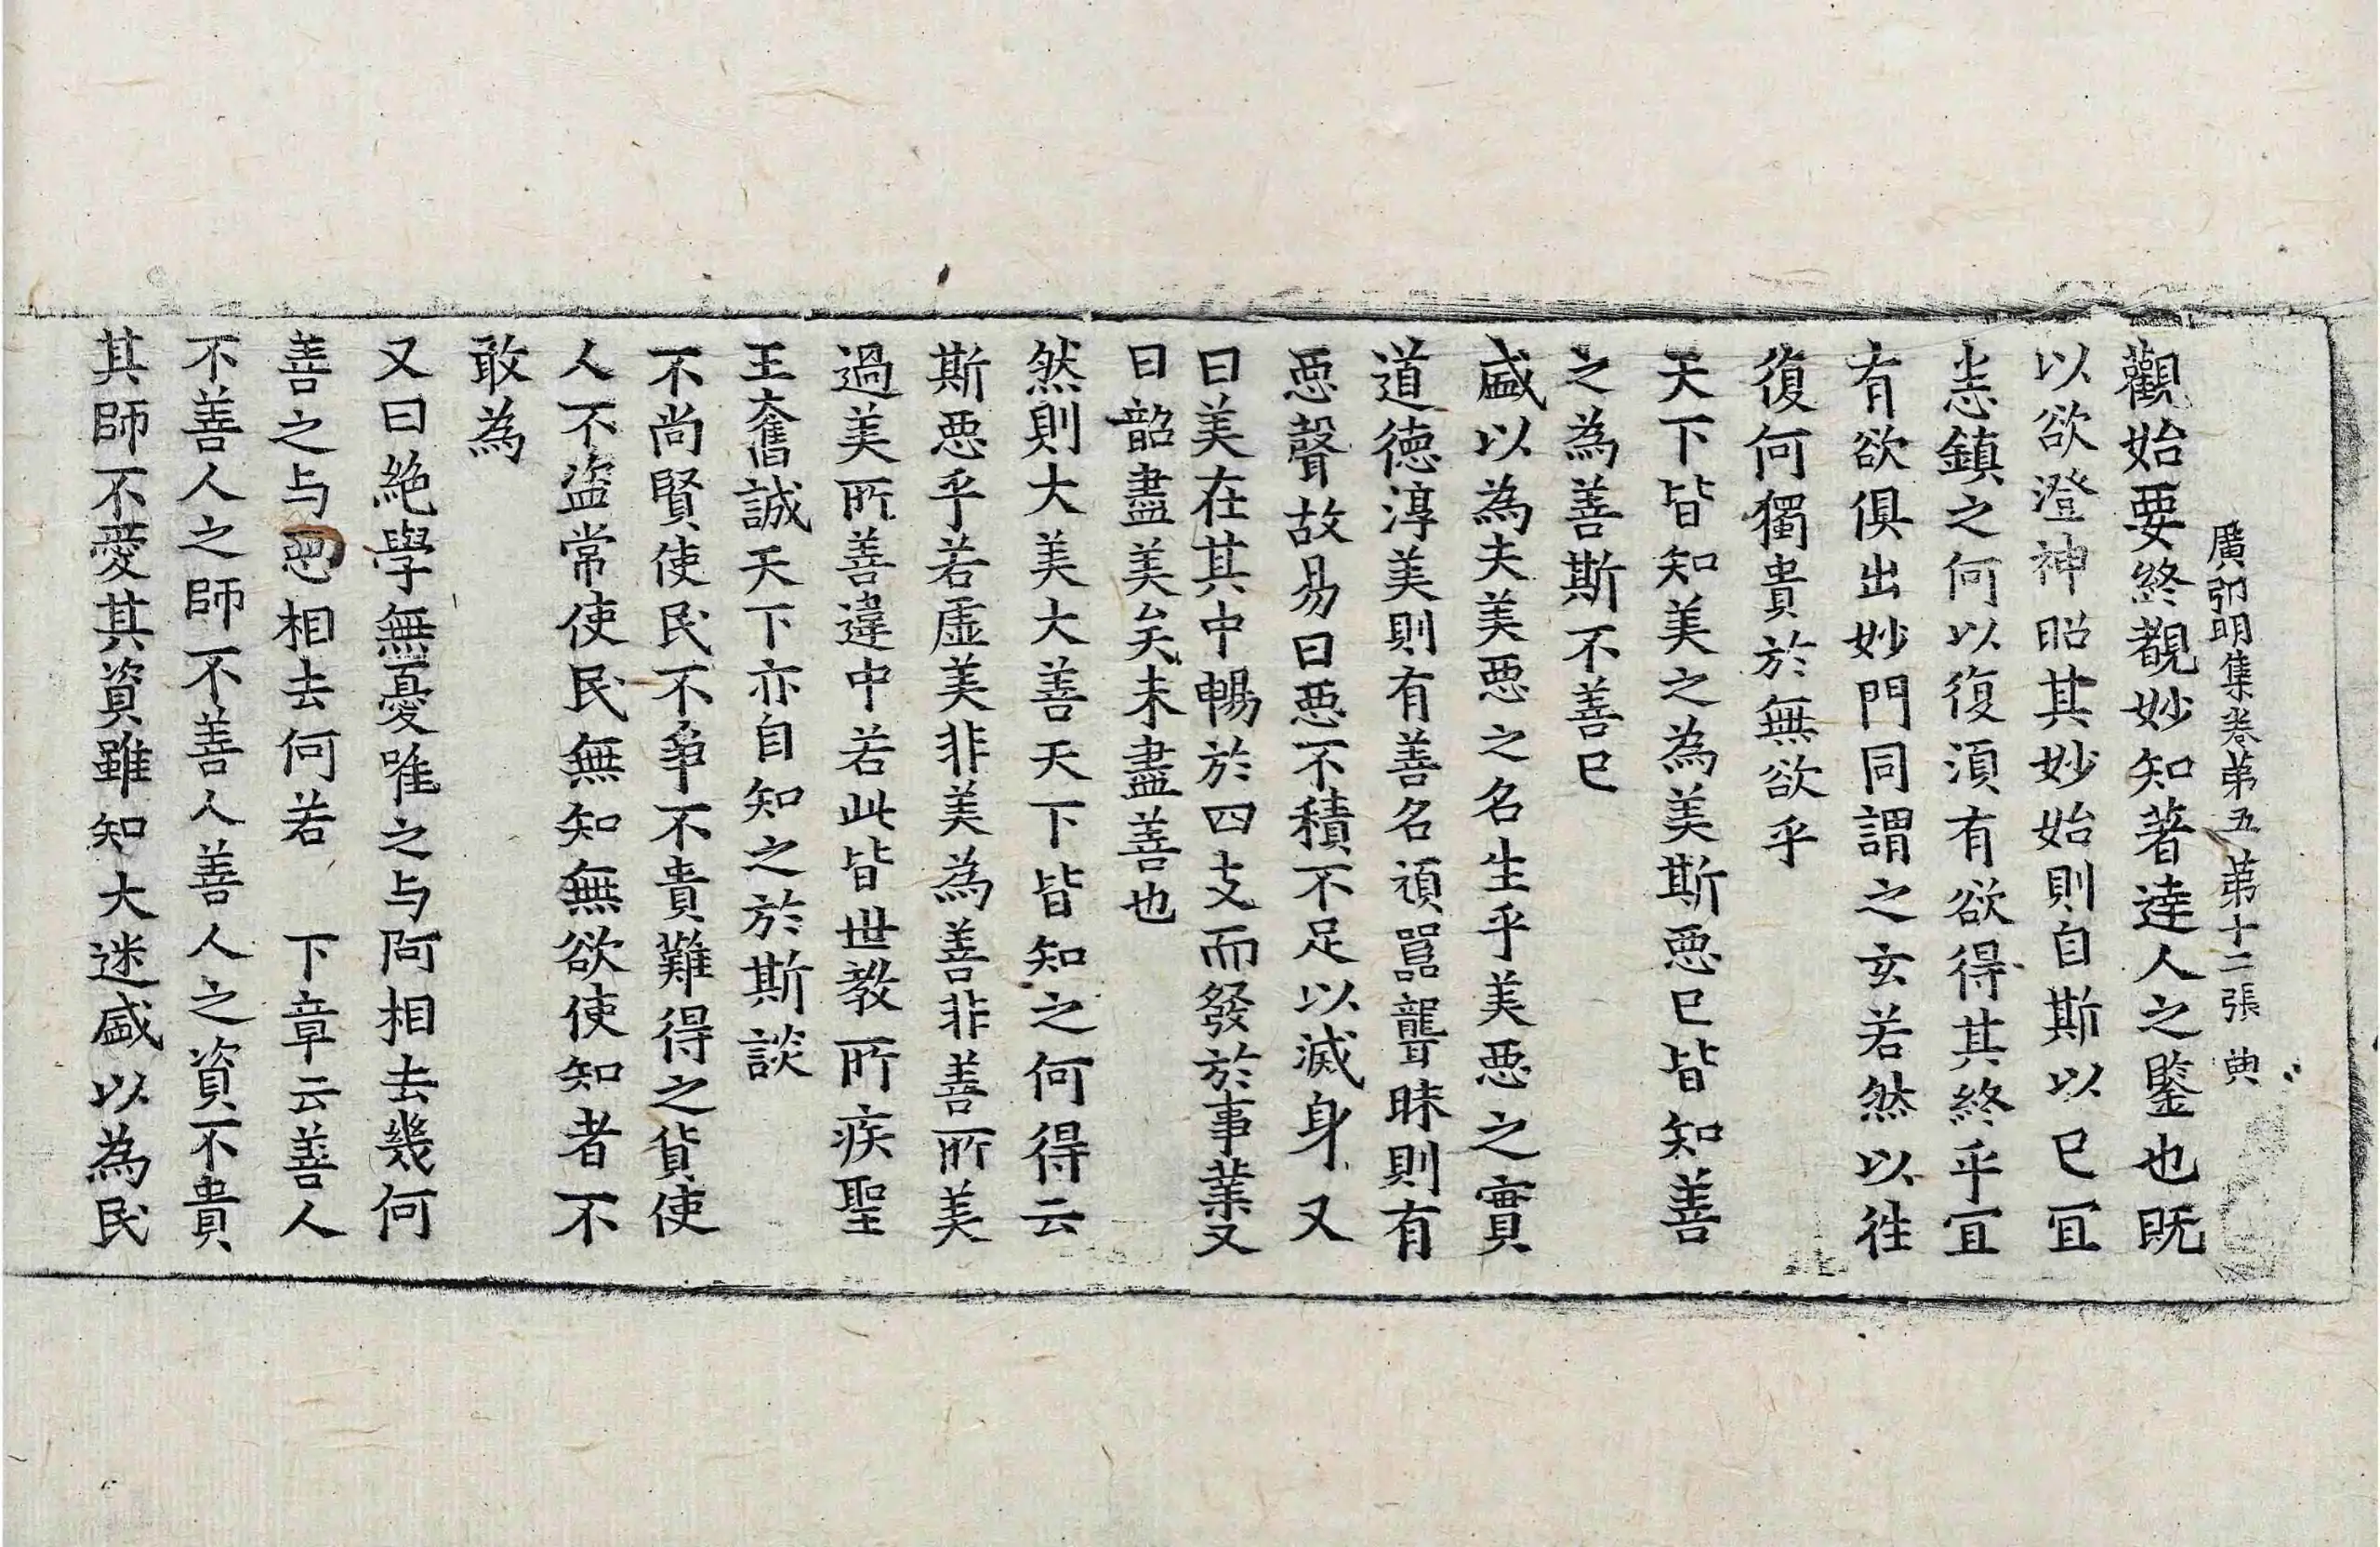 廣弘明集卷第五 第十二張 典
觀始要終覩妙知著達人之鑒也既
以欲澄神昭其妙始則自斯以已冝
恚鎮之何以復湏有欲得其終乎冝
有欲俱出妙門同謂之玄若然以徃
復何獨貴於無欲乎
天下皆知美之為美斯惡已皆知善
之為善斯不善已
盛以為夫美惡之名生乎美惡之實
道德淳美則有善名頑嚚聾昧則有
惡聲故易曰惡不積不足以滅身又
曰美在其中暢於四支而發於事業又
曰韶盡美矣未盡善也
然則大美大善天下皆知之何得云
斯惡乎若虛美非美為善非善所美
過美所善違中若此皆世教所疾聖
王奮誡天下亦自知之於斯談
不尚賢使民不爭不貴難得之貨使
人不盜常使民無知無欲使知者不
敢為
又曰絶學無憂唯之与阿相去幾何
善之与惡相去何若 下章云善人
不善人之師不善人善人之資不貴
其師不愛其資雖知大迷盛以為民